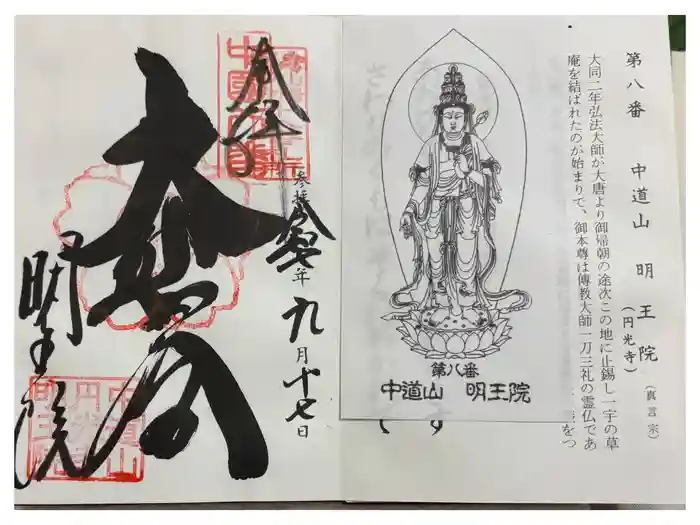 第八番　中道山　明王院
(円光寺)
(真言宗)
大同二年弘法大師が大唐より御帰朝の途次この地に止錫し一宇の草
庵を結ばれたのが始まりで、御本尊は傳教大師一刀三礼の霊仏であ
第八番
中道山　明王院
奉拝
参拝　令和七年九月十七日
大悲殿
明王院
中道山
円光寺
明王院